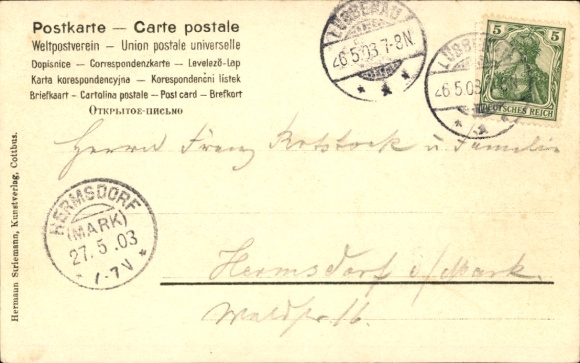 Postkarte — Carte postale
Weltpostverein — Union postale universelle
Dopisnice — Correspondenzkarte — Levelező-Lap
Karta korespondencyjna — Korespondenční lístek
Briefkaart — Cartolina postale — Post card — Brefkort
Открытое-письмо
LÜBBENAU
26.5.03 7-8N.
LÜBBENAU
26.5.03
5 5
DEUTSCHES REICH
Herrn Franz Rotstock u Familie
HERMSDORF
(MARK)
27.5.03
7-7V
Hermsdorf i/Mark.
Waldstr. 16.
Hermann Striemann, Kunstverlag, Cottbus.